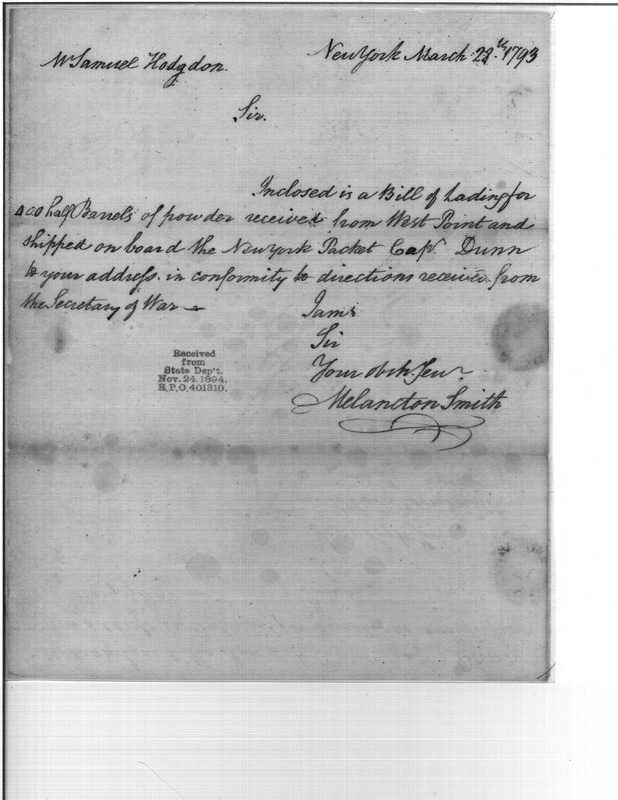 New York March 28th. 1793
Mr Samuel Hodgdon.
Sir.
Inclosed is a Bill of Lading for
400 half Barrels of powder received from West Point and
shipped on board the New York Packet Capt. Dunn
to your address in conformity to directions received from
the Secretary of War
I am
Sir
Your obdt Servt.
Melancton Smith
Received
from
State Dep't.
Nov. 24. 1894.
R.P.O. 401310.